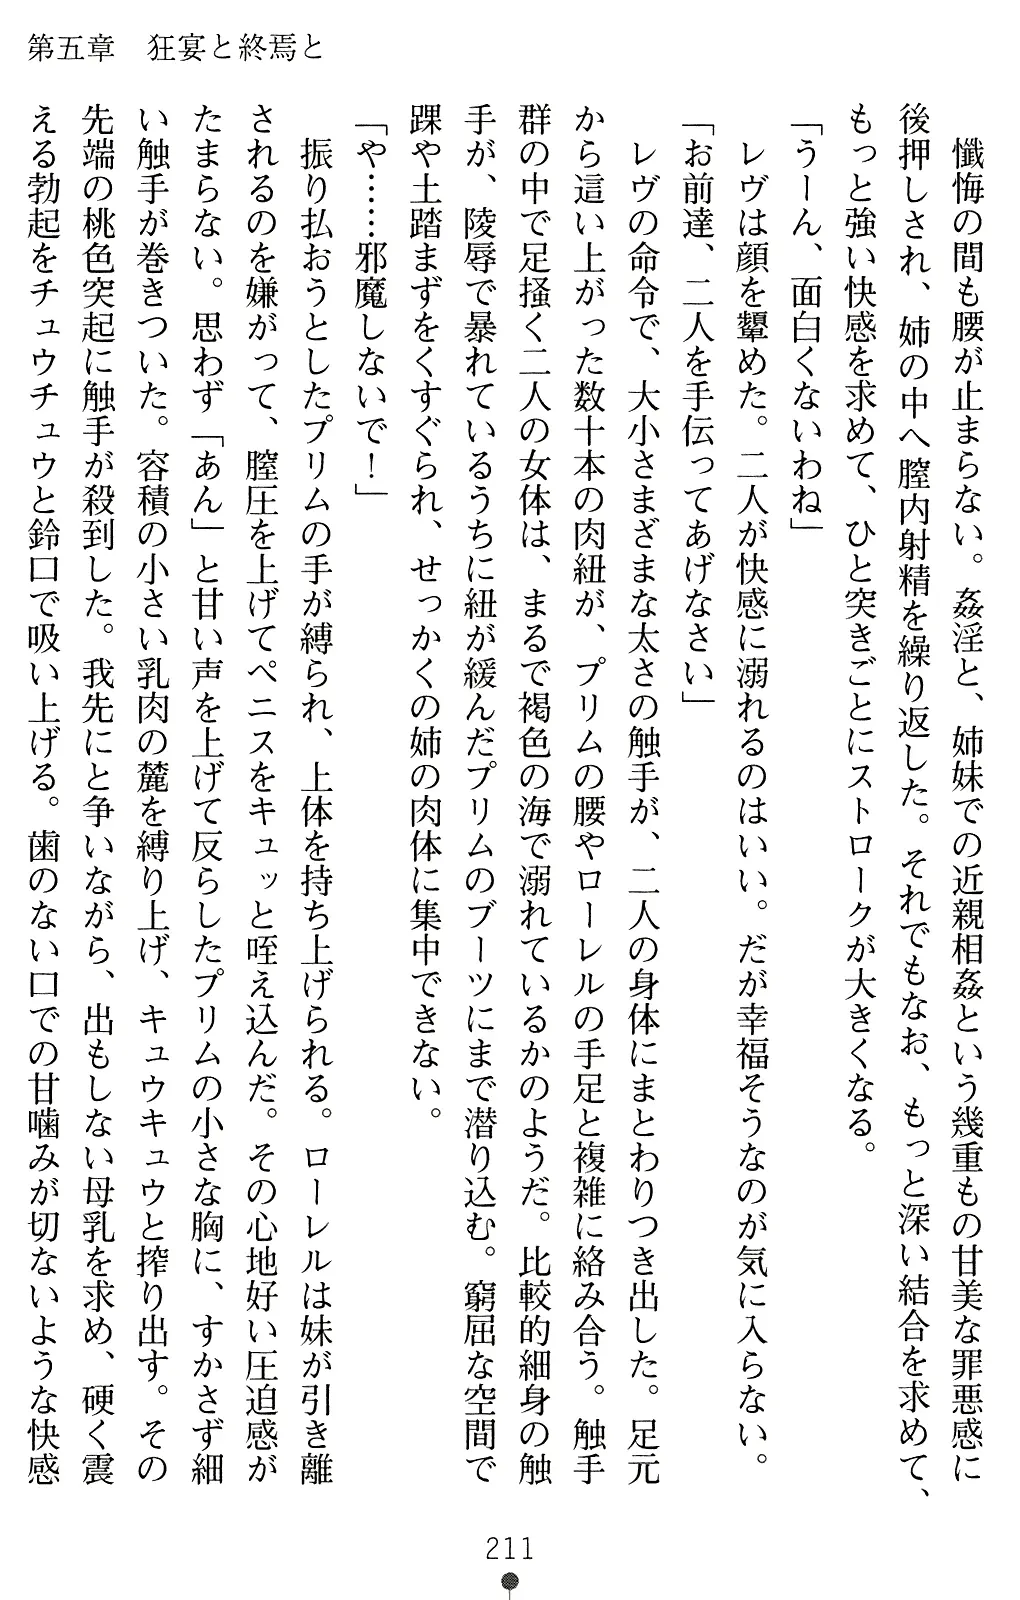 第五章　狂宴と終焉と
　懺悔の間も腰が止まらない。姦淫と、姉妹での近親相姦という幾重もの甘美な罪悪感に
後押しされ、姉の中へ膣内射精を繰り返した。それでもなお、もっと深い結合を求めて、
もっと強い快感を求めて、ひと突きごとにストロークが大きくなる。
「うーん、面白くないわね」
　レヴは顔を顰めた。二人が快感に溺れるのはいい。だが幸福そうなのが気に入らない。
「お前達、二人を手伝ってあげなさい」
　レヴの命令で、大小さまざまな太さの触手が、二人の身体にまとわりつき出した。足元
から這い上がった数十本の肉紐が、プリムの腰やローレルの手足と複雑に絡み合う。触手
群の中で足掻く二人の女体は、まるで褐色の海で溺れているかのようだ。比較的細身の触
手が、陵辱で暴れているうちに紐が緩んだプリムのブーツにまで潜り込む。窮屈な空間で
踝や土踏まずをくすぐられ、せっかくの姉の肉体に集中できない。
「や……邪魔しないで！」
　振り払おうとしたプリムの手が縛られ、上体を持ち上げられる。ローレルは妹が引き離
されるのを嫌がって、膣圧を上げてペニスをキュッと咥え込んだ。その心地好い圧迫感が
たまらない。思わず「あん」と甘い声を上げて反らしたプリムの小さな胸に、すかさず細
い触手が巻きついた。容積の小さい乳肉の麓を縛り上げ、キュウキュウと搾り出す。その
先端の桃色突起に触手が殺到した。我先にと争いながら、出もしない母乳を求め、硬く震
える勃起をチュウチュウと鈴口で吸い上げる。歯のない口での甘噛みが切ないような快感
211